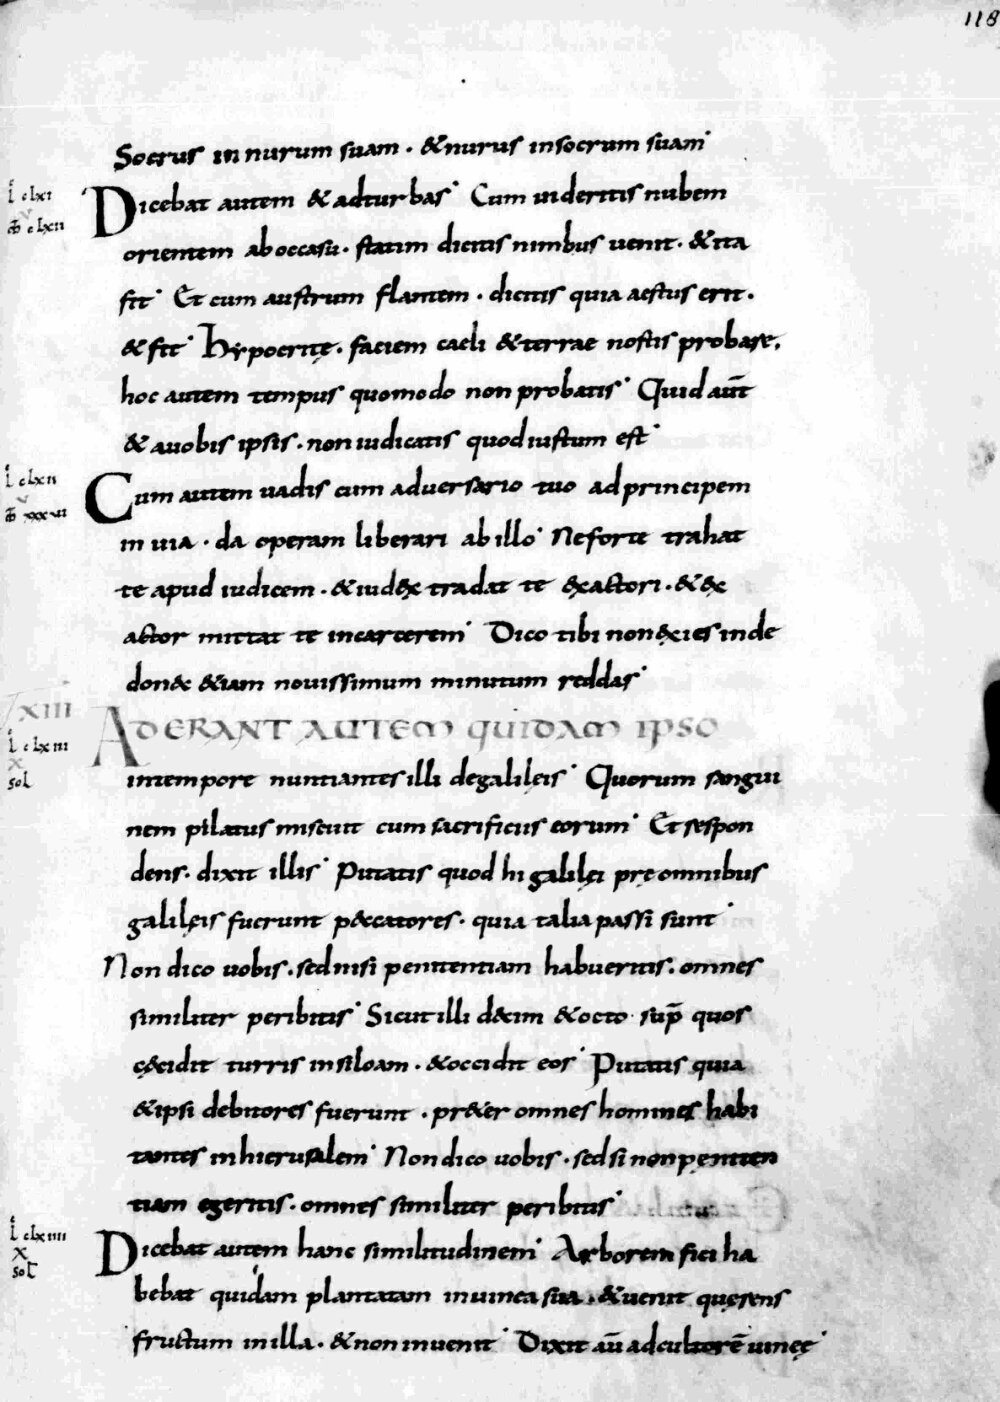 118
Socrus in nurum suam · & nurus in socrum suam
l c lxi
Dicebat autem & ad turbas Cum uideritis nubem
m c lxii
orientem ab occasu · statim dicitis nimbus uenit · & ita
fit Et cum austrum flantem · dicitis quia aestus erit ·
& fit Hypocritę · faciem caeli & terrae nostis probare,
hoc autem tempus quomodo non probatis Quid aut̄
& a uobis ipsis · non iudicatis quod iustum est
l c lxii
Cum autem uadis cum aduersario tuo ad principem
in uia · da operam liberari ab illo Ne forte trahat
te apud iudicem · & iudex tradat te exactori · & ex
actor mittat te in carcerem Dico tibi non exies inde
don&c &iam nouissimum minutum reddas
XIII
ADERANT AUTEM QUIDAM IPSO
l c lxiii
X
sol
in tempore nuntiantes illi de galilęis Quorum sangui
nem pilatus miscuit cum sacrificiis eorum Et respon
dens · dixit illis Putatis quod hi galilęi prę omnibus
galilęis fuerunt peccatores · quia talia passi sunt
Non dico uobis · sed nisi penitentiam habueritis · omnes
similiter peribitis Sicut illi decim & octo sup̄ quos
cęcidit turris in siloam · & occidit eos Putatis quia
& ipsi debitores fuerunt · pr&er omnes homines habi
tantes in hierusalem Non dico uobis · sed si non pęniten
tiam egeritis · omnes similiter peribitis
l c lxiiii
X
sol
Dicebat autem hanc similitudinem Arborem fici ha
bebat quidam plantatam in uinea sua · & uenit quęrens
fructum in illa · & non inuenit Dixit aū ad cultorē uineę